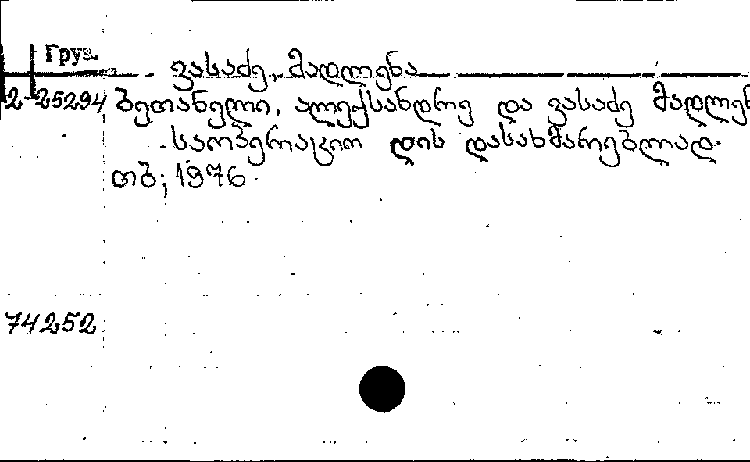 Груз.
ვასაძე, მადლენა
2-25294 ბეთანელი, ალექსანდრე და ვასაძე მადლენ
საოპერაციო დის დასახმარებლად.
თბ; 1976.
74252